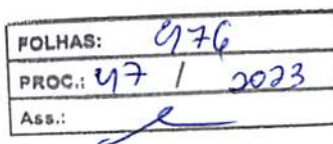 FOLHAS: 976
PROC.: 47 / 2023
Ass.: